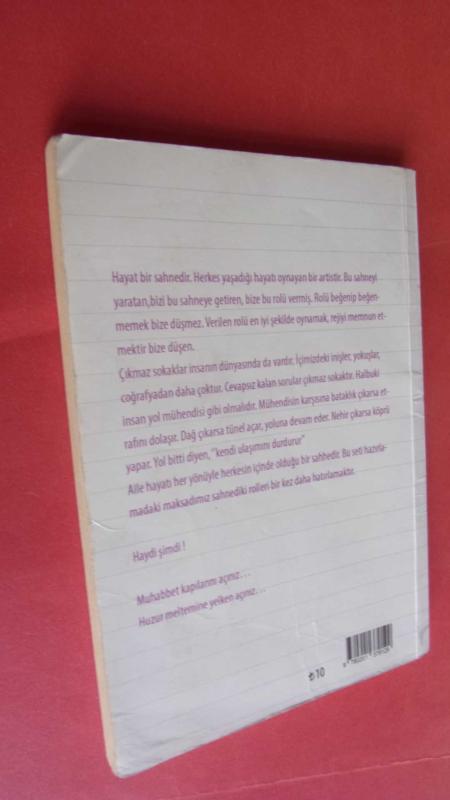 Hayat bir sahnedir. Herkes yaşadığı hayatı oynayan bir artistir. Bu sahneyi
yaratan,bizi bu sahneye getiren, bize bu rolü vermiş. Rolü beğenip beğen-
memek bize düşmez. Verilen rolü en iyi şekilde oynamak, rejiyi memnun et-
mektir bize düşen.
Çıkmaz sokaklar insanın dünyasında da vardır. İçimizdeki inişler, yokuşlar,
coğrafyadan daha çoktur. Cevapsız kalan sorular çıkmaz sokaktır. Halbuki
insan yol mühendisi gibi olmalıdır. Mühendisin karşısına bataklık çıkarsa et-
rafını dolaşır. Dağ çıkarsa tünel açar, yoluna devam eder. Nehir çıkarsa köprü
yapar. Yol bitti diyen, "kendi ulaşımını durdurur"
Aile hayatı her yönüyle herkesin içinde olduğu bir sahnedir. Bu seti hazırla-
madaki maksadımız sahnediki rolleri bir kez daha hatırlamaktır.
Haydi şimdi !
Muhabbet kapılarını açınız...
Huzur meltemine yelken açınız...
₺10